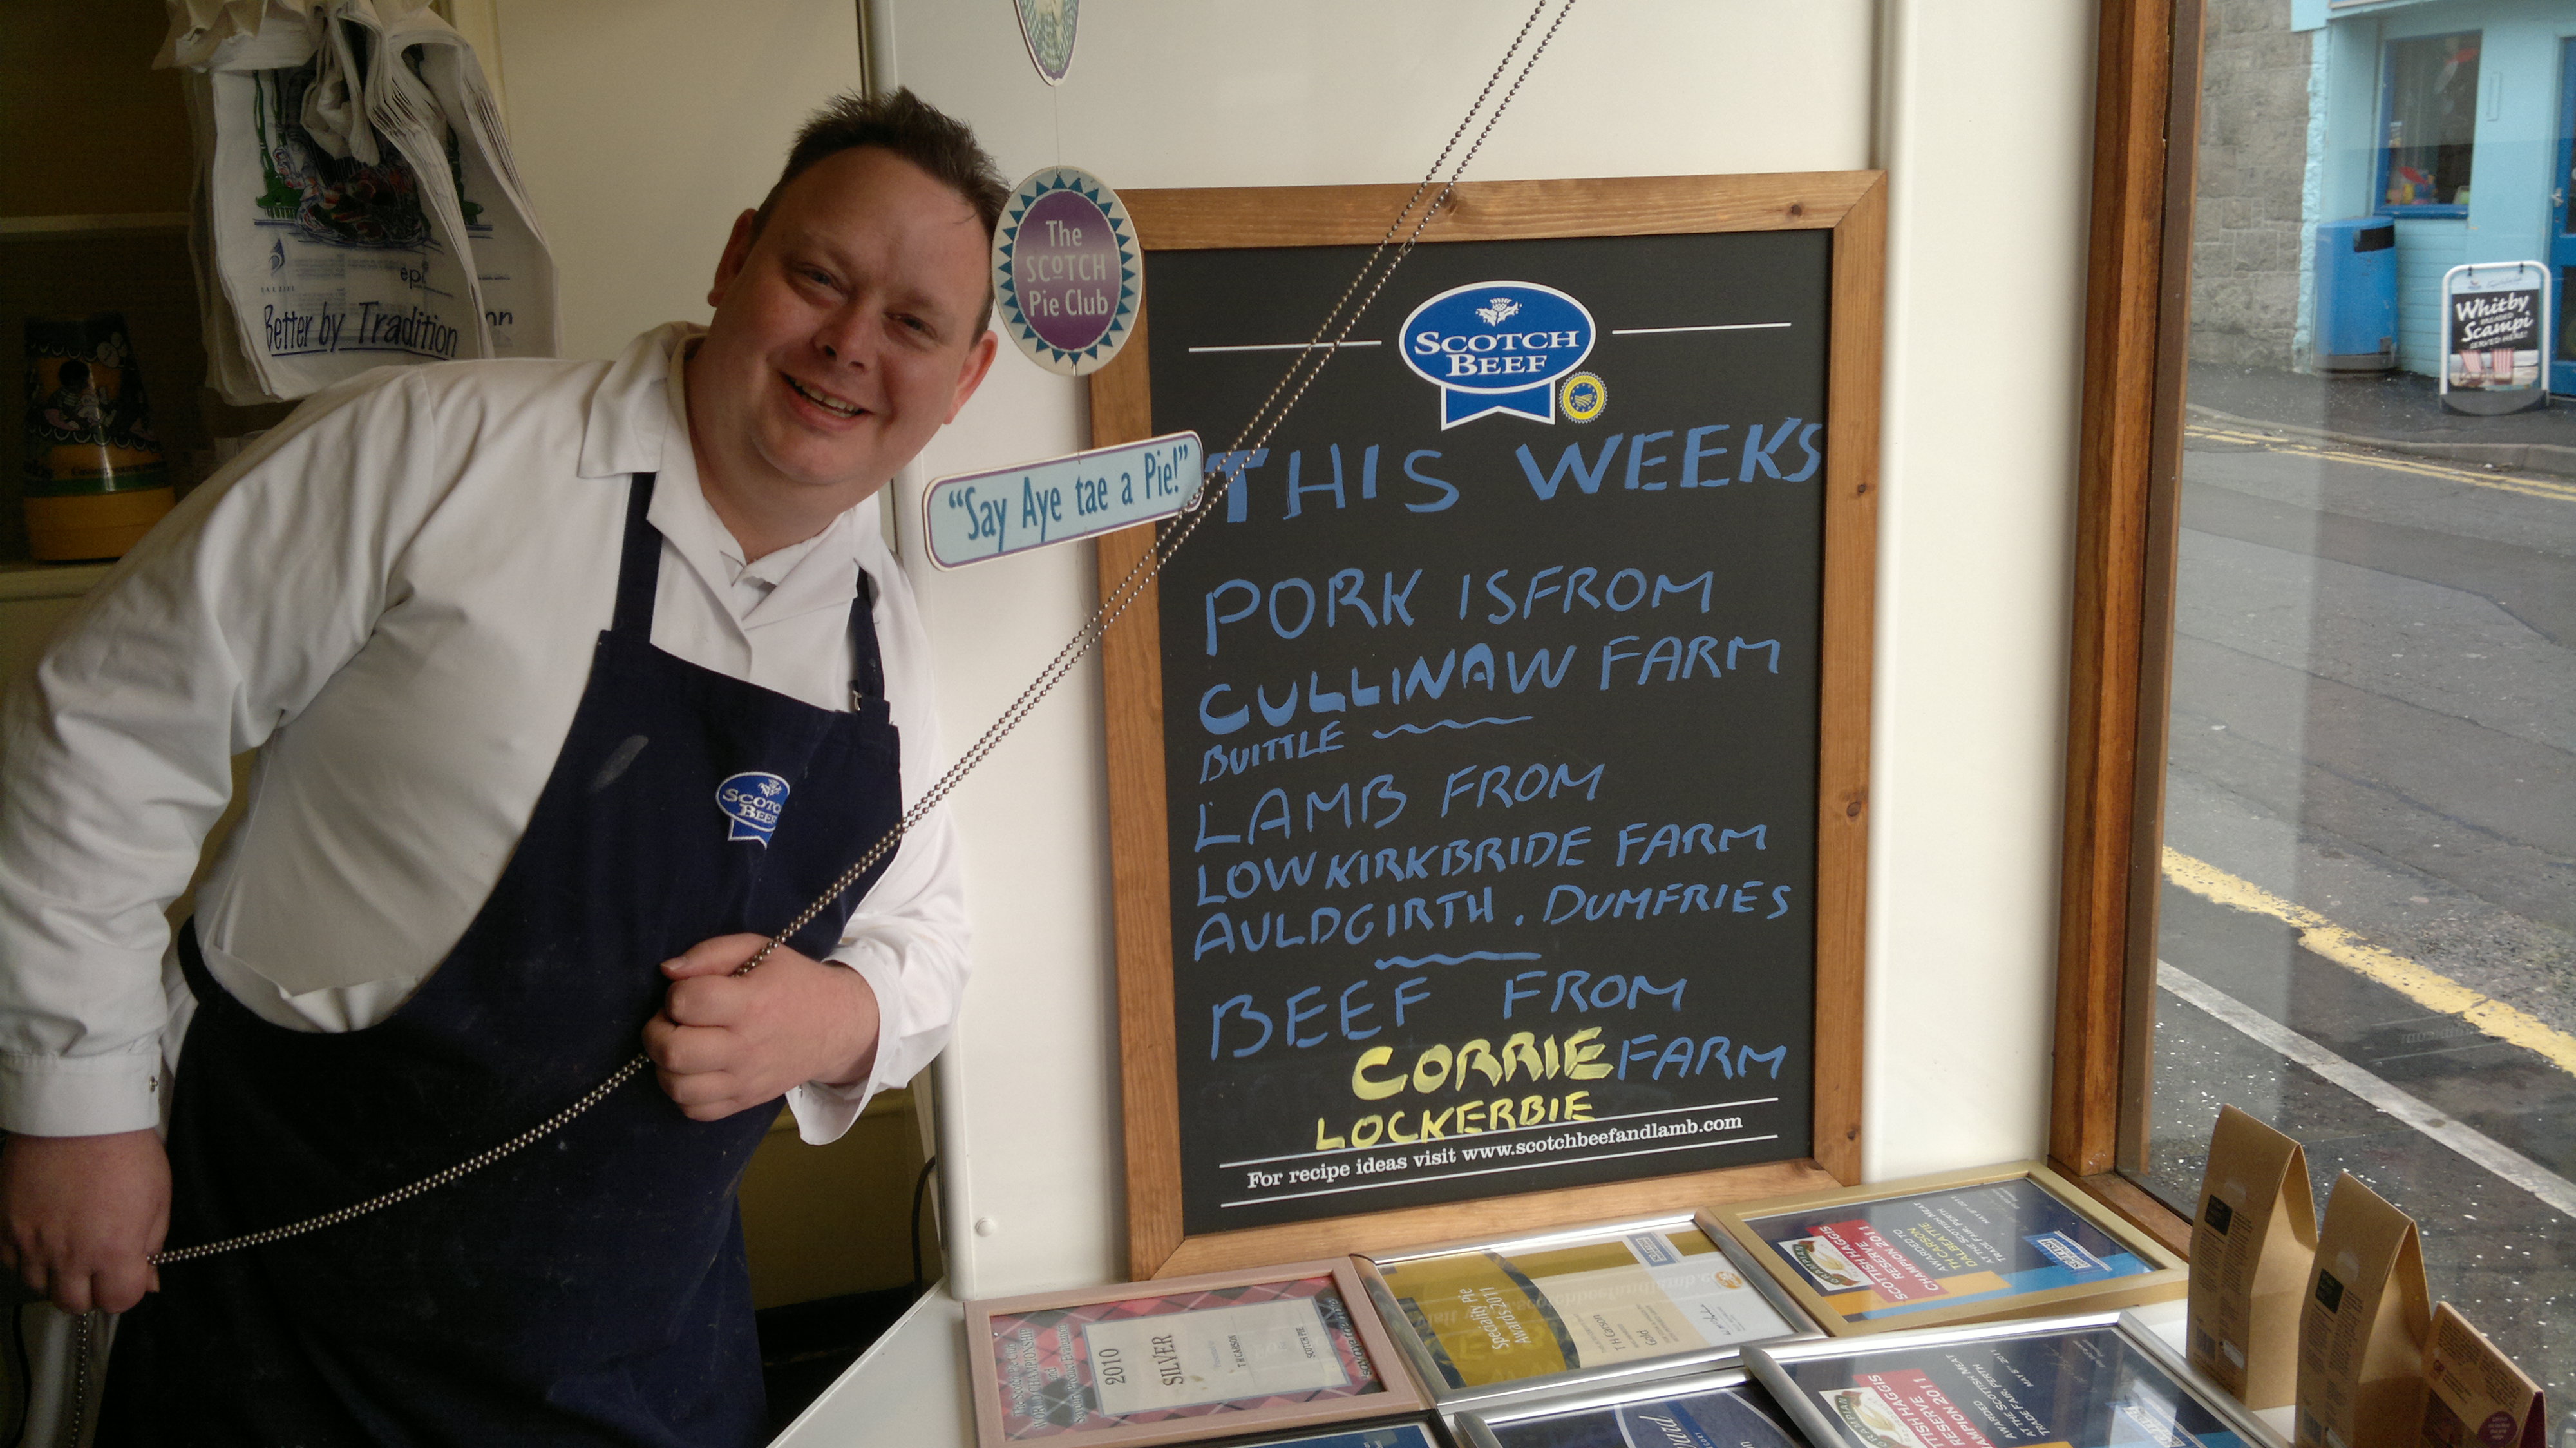 epi
Better by Tradition
on
The
SCOTCH
Pie Club
"Say Aye tae a Pie!"
SCOTCH
BEEF
THIS WEEKS
PORK IS FROM
CULLINAW FARM
BUITTLE
LAMB FROM
LOWKIRKBRIDE FARM
AULDGIRTH . DUMFRIES
BEEF FROM
CORRIE FARM
LOCKERBIE
For recipe ideas visit www.scotchbeefandlamb.com
SCOTC
BEEF
Whitby
Scampi
SERVED HERE!
2010
SILVER
TH CARSON
SCOTCH PIE
Speciality Pie
Awards 2011
T H Carson
Gold
SCOTTISH HAGGIS
RESERVE
CHAMPION 2011
AWARDED TO
TH CARSON
DALBEATTIE
AT THE SCOTTISH MEAT
TRADE FAIR, PERTH
MAY 8TH 2011
GRAMPIAN
TTISH HAGGIS
RESERVE
MPION 2011
AWARDED
AT THE SCOTTISH MEAT
TRADE FAIR, PERTH
MAY 8TH 2011